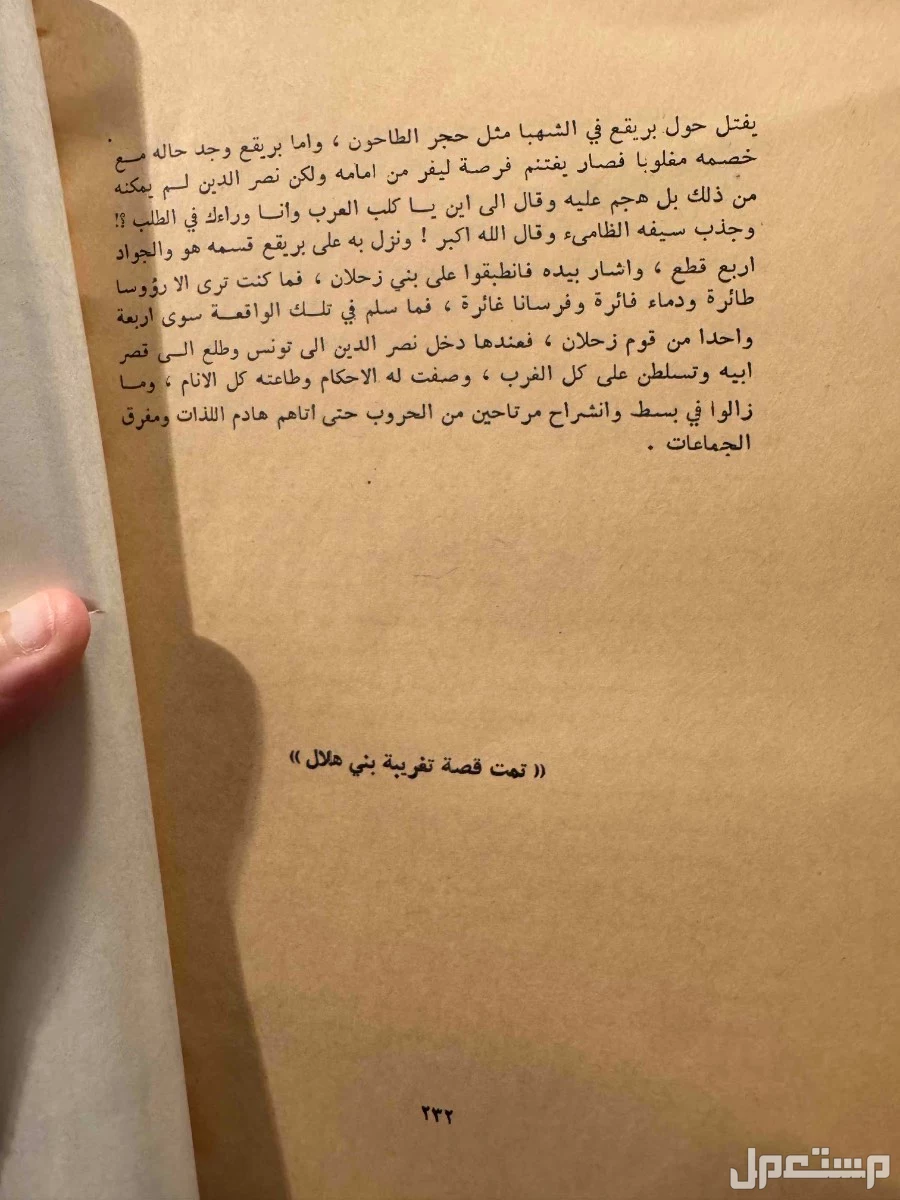 يفتل حول بريقع في الشهبا مثل حجر الطاحون ، واما بريقع وجد حاله مع
خصمه مغلوبا فصار يغتنم فرصة ليفر من امامه ولكن نصر الدين لم يمكنه
من ذلك بل هجم عليه وقال الى اين يا كلب العرب وأنا وراءك في الطلب ؟!
وجذب سيفه الظامىء وقال الله اكبر ! ونزل به على بريقع قسمه هو والجواد
اربع قطع ، واشار بيده فانطبقوا على بني زحلان ، فما كنت ترى الا رؤوسا
طائرة ودماء فائرة وفرسانا غائرة ، فما سلم في تلك الواقعة سوى اربعة
واحدا من قوم زحلان ، فعندها دخل نصر الدين الى تونس وطلع الى قصر
ابيه وتسلطن على كل الغرب ، وصفت له الاحكام وطاعته كل الانام ، وما
زالوا في بسط وانشراح مرتاحين من الحروب حتى اتاهم هادم اللذات ومفرق
الجماعات .
(( تمت قصة تغريبة بني هلال ))
٢٣٢
مستعمل